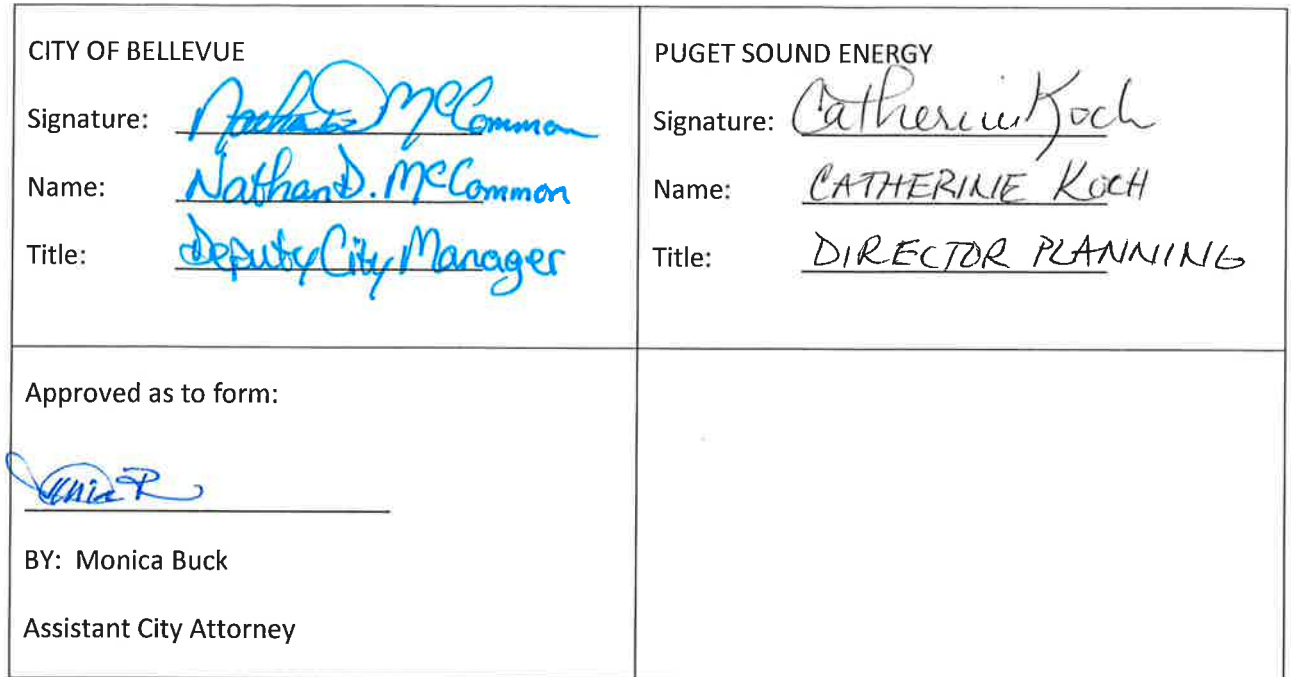 CITY OF BELLEVUE
Signature: Nathan D McCommon
Name: Nathan D. McCommon
Title: Deputy City Manager
PUGET SOUND ENERGY
Signature: Catherine Koch
Name: CATHERINE KOCH
Title: DIRECTOR PLANNING
Approved as to form:
BY: Monica Buck
Assistant City Attorney